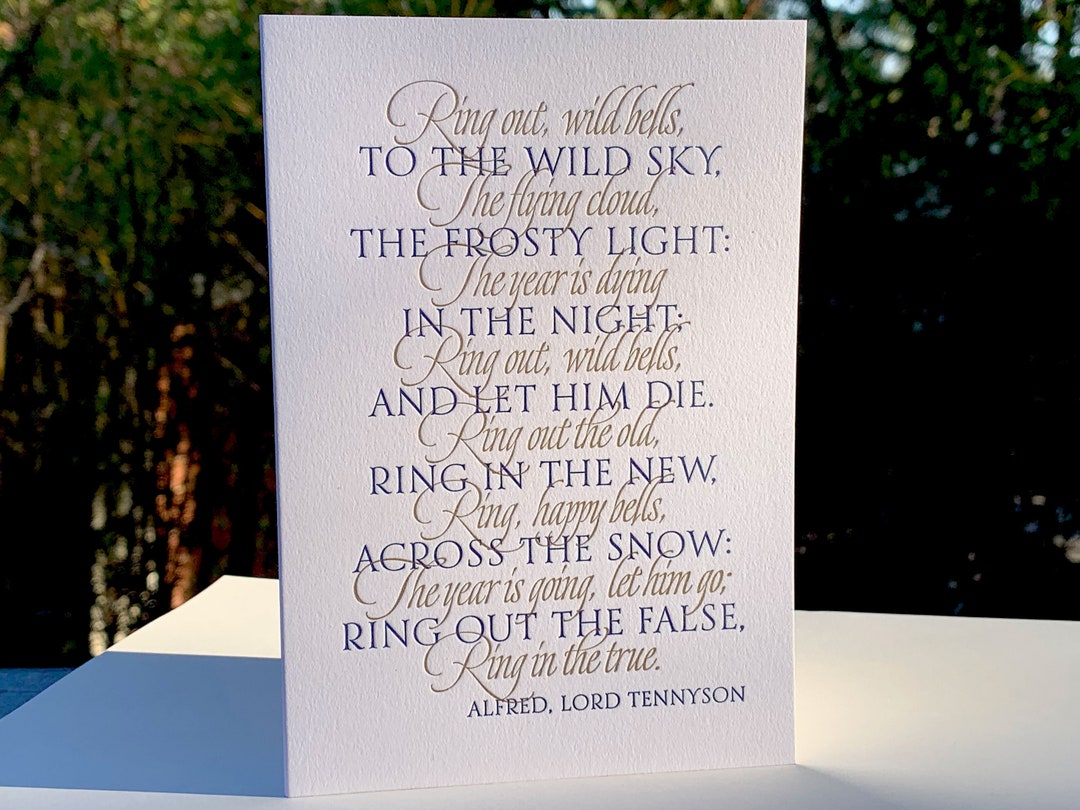 Ring out, wild bells,
TO THE WILD SKY,
The flying cloud,
THE FROSTY LIGHT:
The year is dying
IN THE NIGHT:
Ring out, wild bells,
AND LET HIM DIE.
Ring out the old,
RING IN THE NEW,
Ring, happy bells,
ACROSS THE SNOW:
The year is going, let him go;
RING OUT THE FALSE,
Ring in the true.
ALFRED, LORD TENNYSON